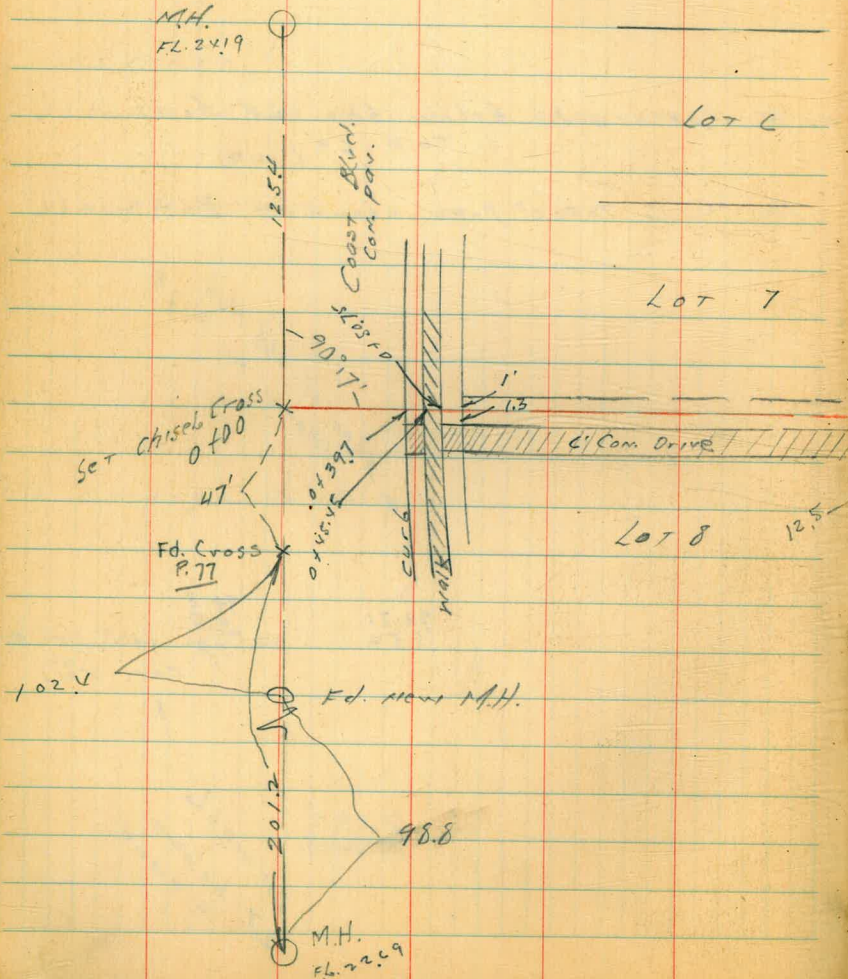 M.H.
FL. 24.19
LOT 6
125.4
Coast Blvd.
Con. pav.
LOT 7
0+50.75
90° 17'
1'
1.3
Set Chisel Cross
0+00
6' Con. Drive
47'
0+39.7
0+45.45
curb
walk
LOT 8
12.5
Fd. Cross
P. 77
102.4
Fd. new M.H.
201.2
98.8
M.H.
FL. 22.69